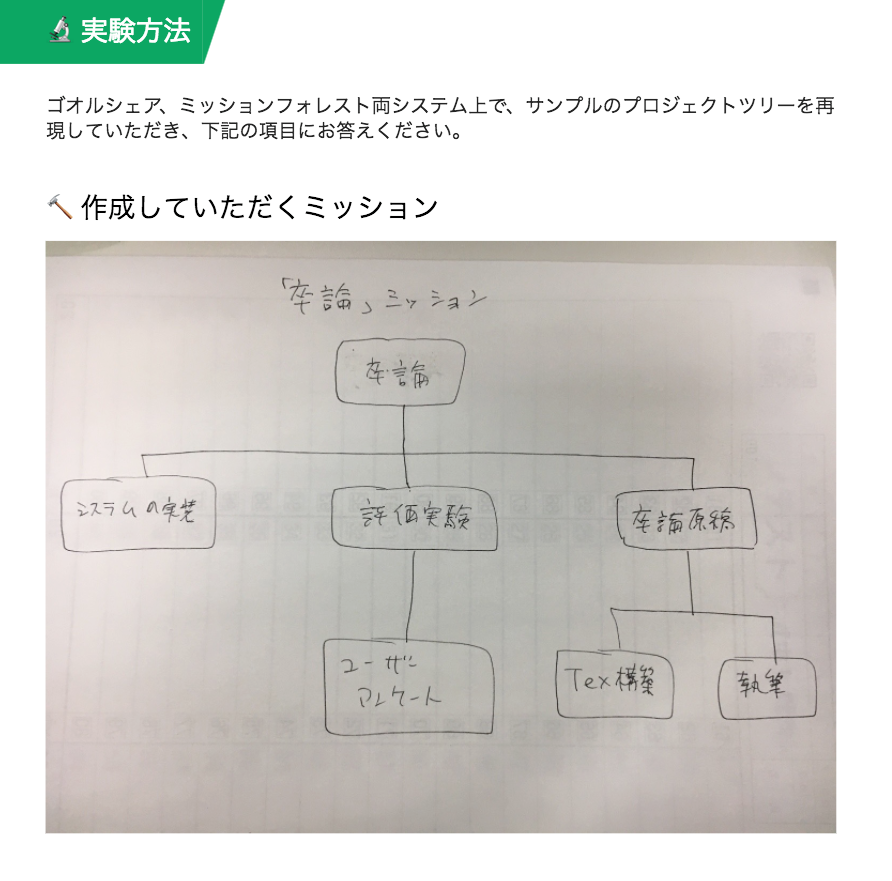 実験方法
ゴオルシェア、ミッションフォレスト両システム上で、サンプルのプロジェクトツリーを再
現していただき、下記の項目にお答えください。
作成していただくミッション
「卒論」ミッション
卒論
システムの実装
評価実験
卒論原稿
ユーザー
アンケート
Tex構築
執筆